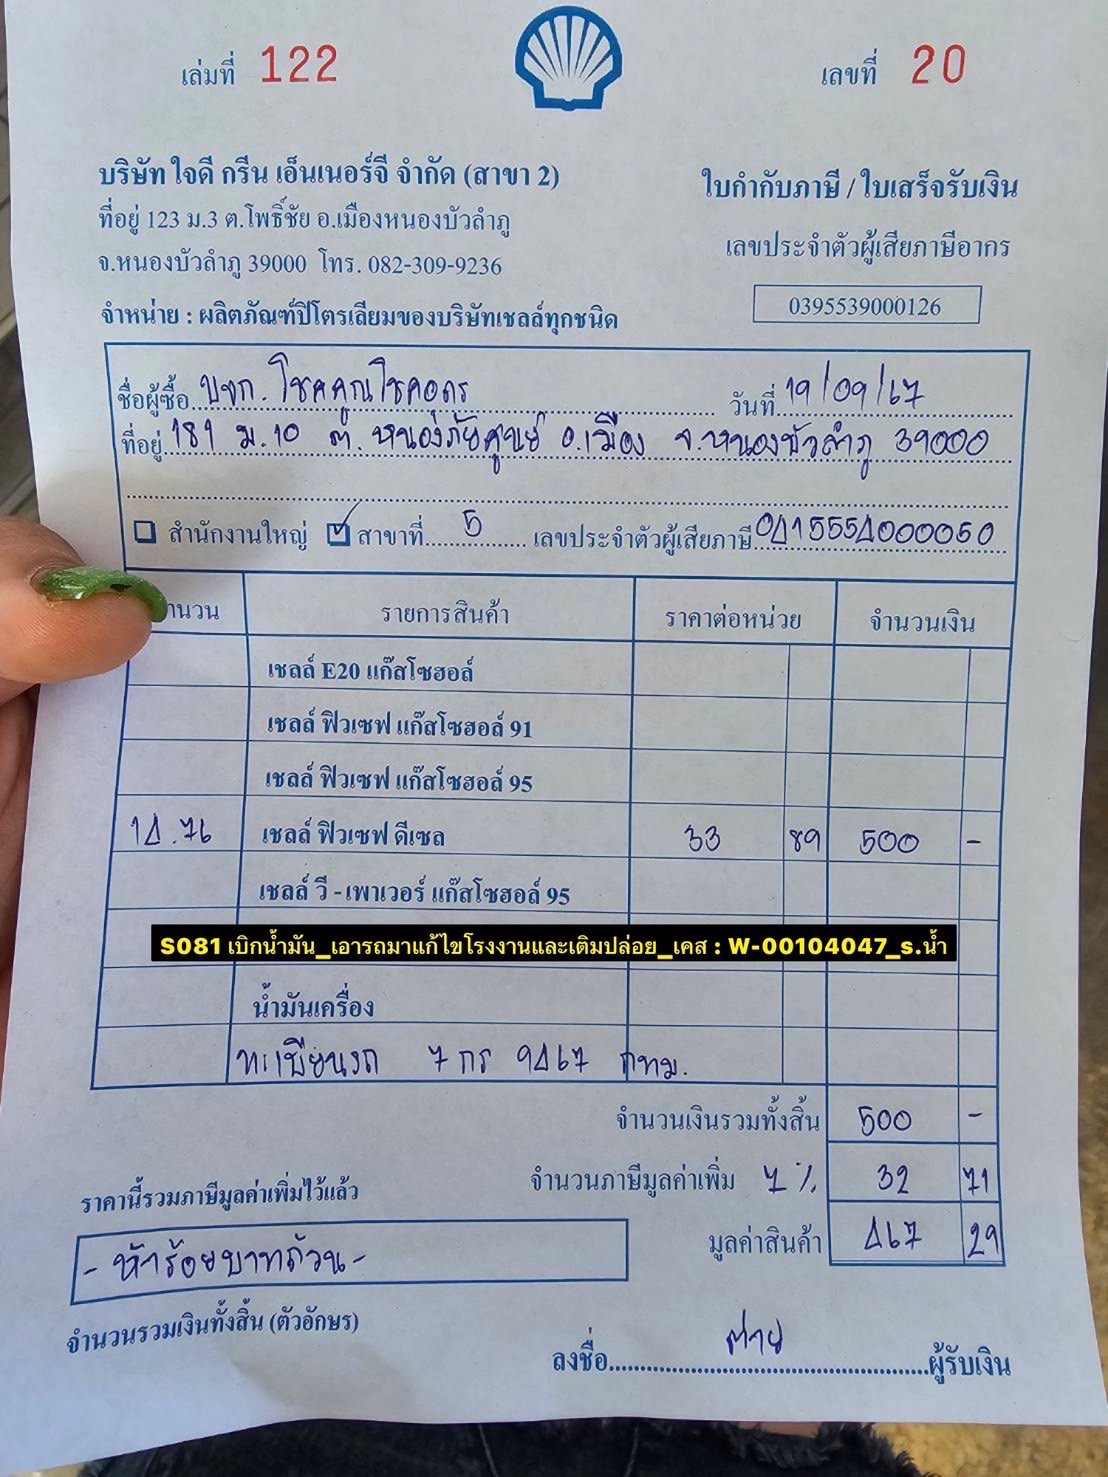 เล่มที่ 122
เลขที่ 20
บริษัท ใจดี กรีน เอ็นเนอร์จี จำกัด (สาขา 2)
ที่อยู่ 123 ม.3 ต.โพธิ์ชัย อ.เมืองหนองบัวลำภู
จ.หนองบัวลำภู 39000 โทร. 082-309-9236
จำหน่าย : ผลิตภัณฑ์ปิโตรเลียมของบริษัทเชลล์ทุกชนิด
ใบกำกับภาษี / ใบเสร็จรับเงิน
เลขประจำตัวผู้เสียภาษีอากร
0395539000126
ชื่อผู้ซื้อ บจก. โชคคูณโชคอุดร วันที่ 19/09/67
ที่อยู่ 181 ม.10 ต.หนองภัยศูนย์ อ.เมือง จ.หนองบัวลำภู 39000
สำนักงานใหญ่ สาขาที่ 5 เลขประจำตัวผู้เสียภาษี 0415554000050
จำนวน รายการสินค้า ราคาต่อหน่วย จำนวนเงิน
เชลล์ E20 แก๊สโซฮอล์
เชลล์ ฟิวเซฟ แก๊สโซฮอล์ 91
เชลล์ ฟิวเซฟ แก๊สโซฮอล์ 95
14.76 เชลล์ ฟิวเซฟ ดีเซล 33 89 500 -
เชลล์ วี - เพาเวอร์ แก๊สโซฮอล์ 95
S081 เบิกน้ำมัน_เอารถมาแก้ไขโรงงานและเติมปล่อย_เคส : W-00104047_s.น้ำ
น้ำมันเครื่อง
ทะเบียนรถ 7 กร 9467 กทม.
จำนวนเงินรวมทั้งสิ้น 500 -
จำนวนภาษีมูลค่าเพิ่ม 7 % 32 71
มูลค่าสินค้า 467 29
ราคานี้รวมภาษีมูลค่าเพิ่มไว้แล้ว
- ห้าร้อยบาทถ้วน -
จำนวนรวมเงินทั้งสิ้น (ตัวอักษร)
ลงชื่อ ต่าย ผู้รับเงิน